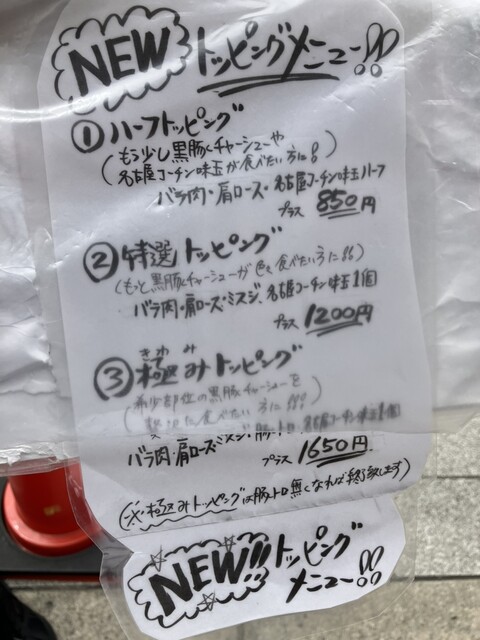 NEW トッピングメニュー!!
① ハーフトッピング
(もう少し黒豚チャーシューや
名古屋コーチン味玉が食べたい方に!)
バラ肉・肩ロース・名古屋コーチン味玉ハーフ
プラス 850円
② 特選トッピング
(もっと黒豚チャーシューが色々食べたい方に!!)
バラ肉・肩ロース・ミスジ、名古屋コーチン味玉1個
プラス 1200円
きわみ
③ 極みトッピング
(希少部位の黒豚チャーシューを
食べたい方に!!!)
バラ肉・肩ロース・ミスジ・豚トロ、名古屋コーチン味玉1個
プラス 1650円
(※極みトッピングは豚トロ無くなれば終了致します)
NEW!! トッピング
メニュー!!